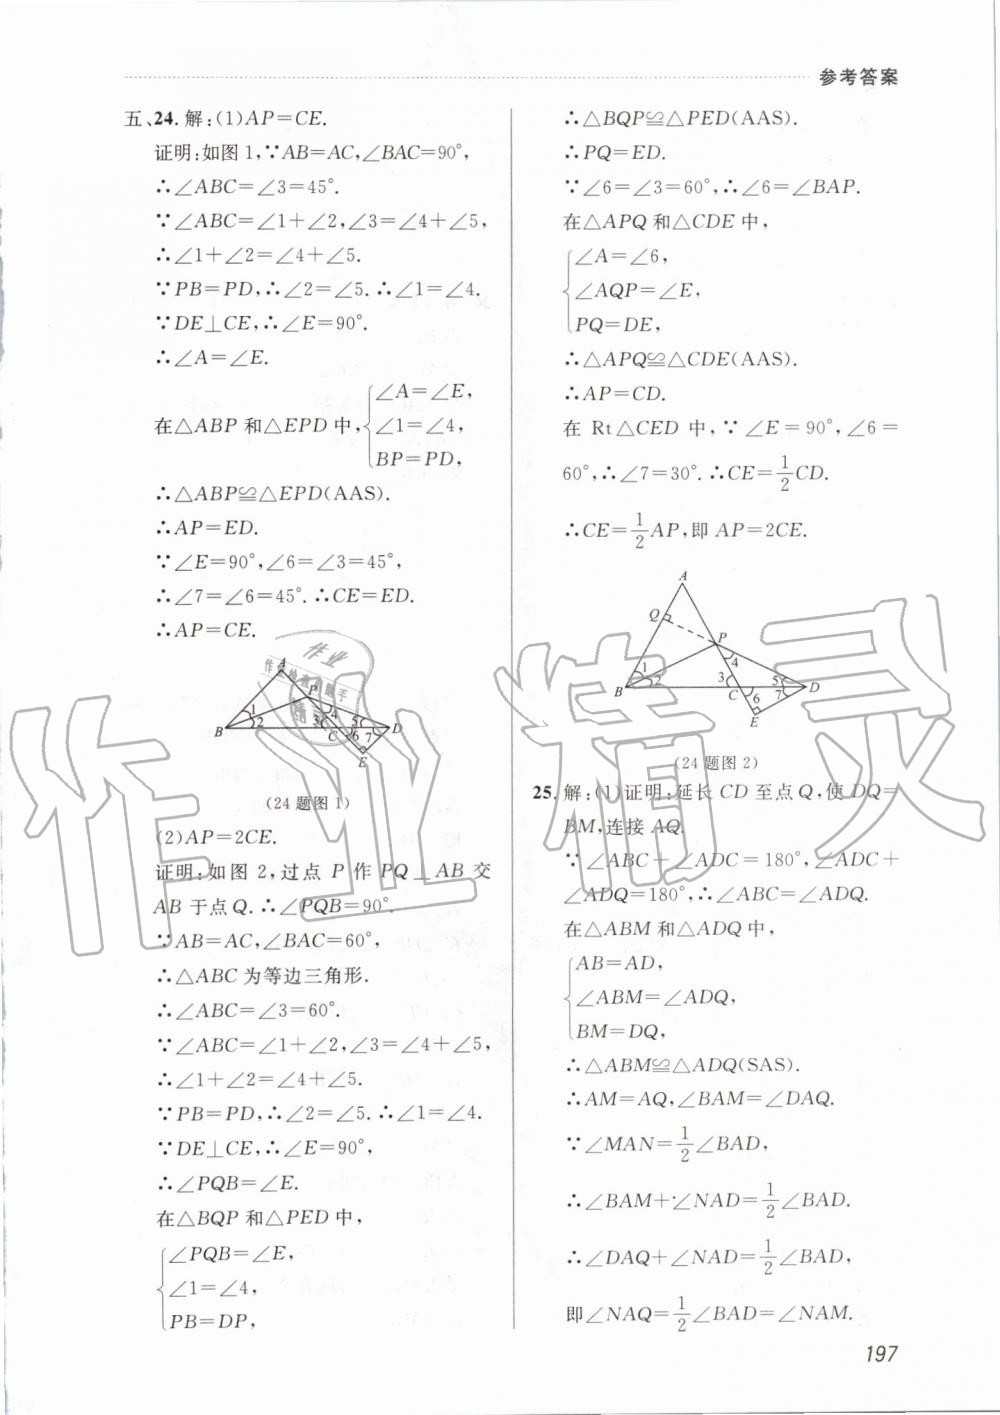 参考答案
五、24. 解:(1)AP=CE.
证明:如图1,∵AB=AC,∠BAC=90°,
∴∠ABC=∠3=45°.
∵∠ABC=∠1+∠2,∠3=∠4+∠5,
∴∠1+∠2=∠4+∠5.
∵PB=PD,∴∠2=∠5.∴∠1=∠4.
∵DE⊥CE,∴∠E=90°.
∴∠A=∠E.
在△ABP和△EPD中,{∠A=∠E,
∠1=∠4,
BP=PD,
∴△ABP≌△EPD(AAS).
∴AP=ED.
∵∠E=90°,∠6=∠3=45°,
∴∠7=∠6=45°.∴CE=ED.
∴AP=CE.
A
P
B
1
2
3
4
5
C
6
7
D
E
(24题图1)
(2)AP=2CE.
证明:如图2,过点P作PQ⊥AB交
AB于点Q.∴∠PQB=90°.
∵AB=AC,∠BAC=60°,
∴△ABC为等边三角形.
∴∠ABC=∠3=60°.
∵∠ABC=∠1+∠2,∠3=∠4+∠5,
∴∠1+∠2=∠4+∠5.
∵PB=PD,∴∠2=∠5.∴∠1=∠4.
∵DE⊥CE,∴∠E=90°,
∴∠PQB=∠E.
在△BQP和△PED中,
{∠PQB=∠E,
∠1=∠4,
PB=DP,
∴△BQP≌△PED(AAS).
∴PQ=ED.
∵∠6=∠3=60°,∴∠6=∠BAP.
在△APQ和△CDE中,
{∠A=∠6,
∠AQP=∠E,
PQ=DE,
∴△APQ≌△CDE(AAS).
∴AP=CD.
在Rt△CED中,∵∠E=90°,∠6=
60°,∴∠7=30°.∴CE=1/2CD.
∴CE=1/2AP,即AP=2CE.
A
Q
P
B
1
2
3
4
5
C
6
7
D
E
(24题图2)
25. 解:(1)证明:延长CD至点Q,使DQ=
BM,连接AQ.
∵∠ABC+∠ADC=180°,∠ADC+
∠ADQ=180°,∴∠ABC=∠ADQ.
在△ABM和△ADQ中,
{AB=AD,
∠ABM=∠ADQ,
BM=DQ,
∴△ABM≌△ADQ(SAS).
∴AM=AQ,∠BAM=∠DAQ.
∵∠MAN=1/2∠BAD,
∴∠BAM+∠NAD=1/2∠BAD.
∴∠DAQ+∠NAD=1/2∠BAD,
即∠NAQ=1/2∠BAD=∠NAM.
197
作业精灵